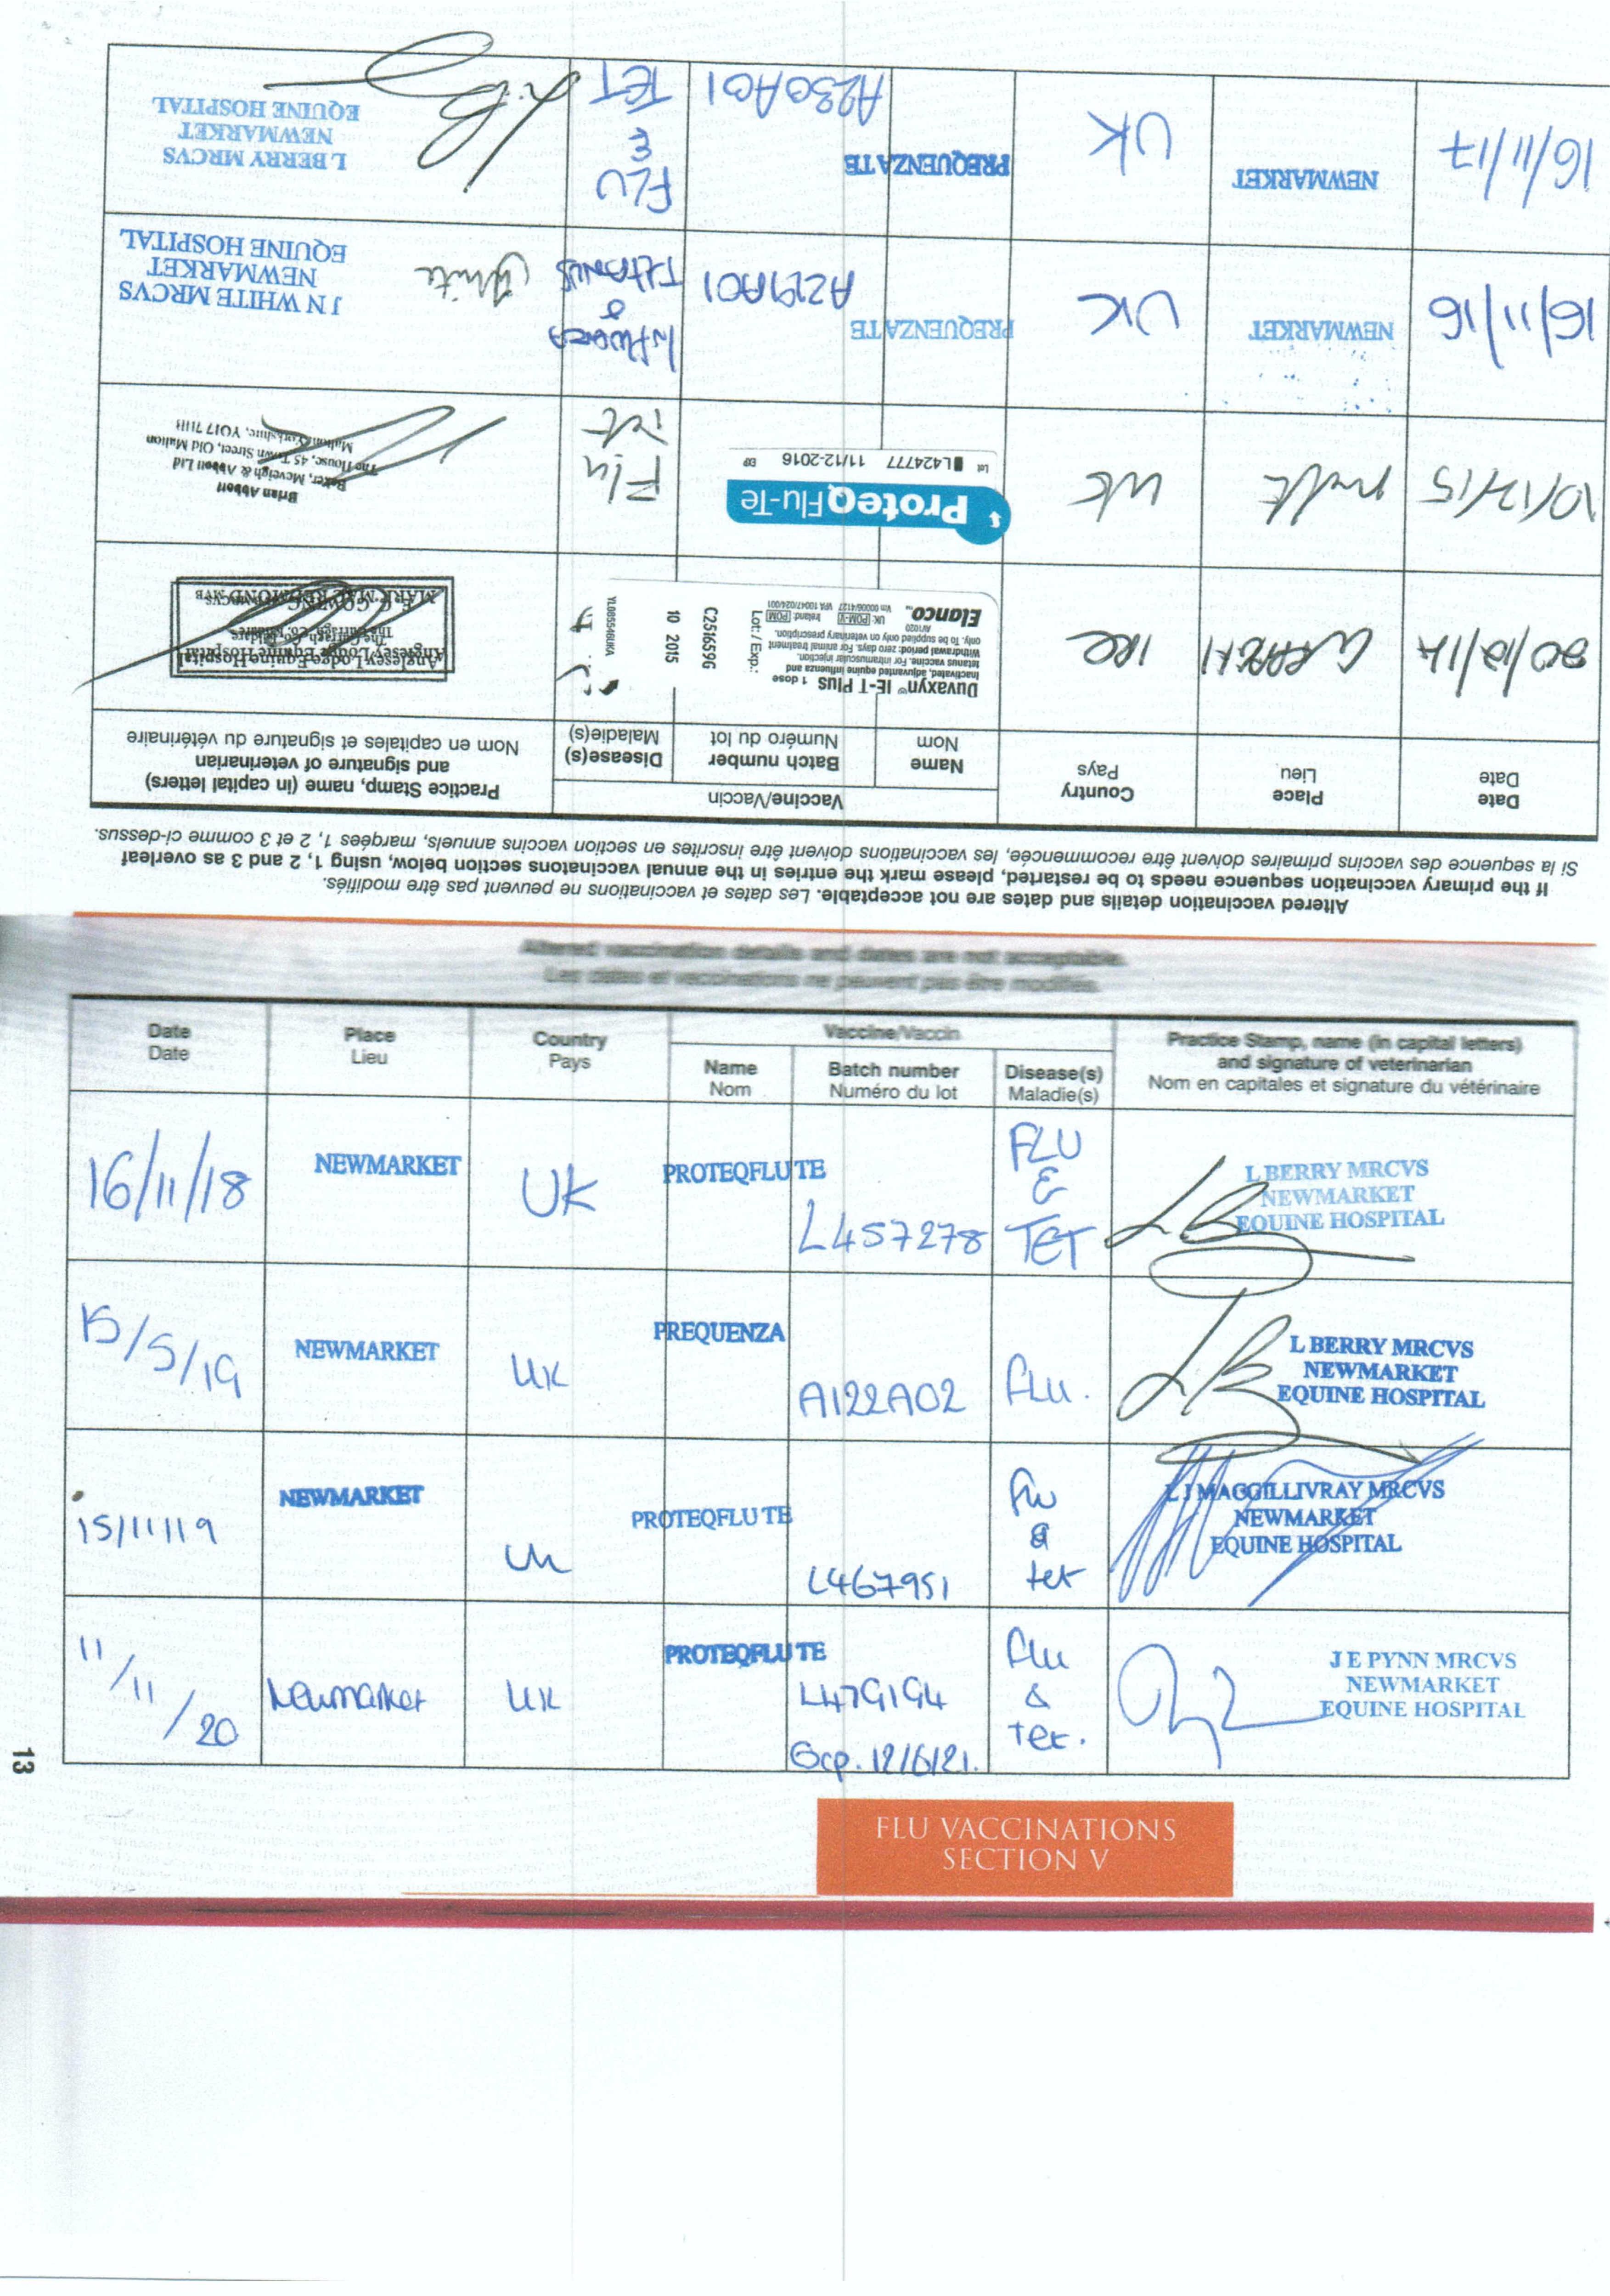 Altered vaccination details and dates are not acceptable. Les dates et vaccinations ne peuvent pas être modifiés.
If the primary vaccination sequence needs to be restarted, please mark the entries in the annual vaccinatons section below, using 1, 2 and 3 as overleaf
Si la sequence des vaccins primaires doivent être recommencée, les vaccinations doivent être inscrites en section vaccins annuels, marqées 1, 2 et 3 comme ci-dessus.
Date
Date
Place
Lieu
Country
Pays
Vaccine/Vaccin
Name
Nom
Batch number
Numéro du lot
Disease(s)
Maladie(s)
Practice Stamp, name (in capital letters)
and signature of veterinarian
Nom en capitales et signature du vétérinaire
20/12/14
CURRAGH
IRE
Duvaxyn® IE-T Plus 1 dose
Inactivated, adjuvanted equine influenza and
tetanus vaccine. For intramuscular injection.
Withdrawal period: zero days. For animal treatment
only. To be supplied only on veterinary prescription.
AV1020
Elanco™
UK: POM-V Ireland: POM
Vm 00006/4127 VPA 10047/024/001
Lot: / Exp.:
C251659G
10 2015
YL085546UKA
Anglesey Lodge Equine Hospital
The Curragh, Co. Kildare
10/12/15
UK
ProteqFlu-Te
Lot L424777 11/12-2016 EXP
Flu
Tet
Brian Abbott
Baker, Mcveigh & Abbott Ltd
House, 45 Town Street, Old Malton
Malton, Yorkshire, YO17 7HH
16/11/16
NEWMARKET
UK
PREQUENZA TE
A219A01
INFLUENZA
&
TETANUS
J N WHITE MRCVS
NEWMARKET
EQUINE HOSPITAL
White
16/11/17
NEWMARKET
UK
PREQUENZA TE
A230A01
FLU
&
TET
L BERRY MRCVS
NEWMARKET
EQUINE HOSPITAL
Altered vaccination details and dates are not acceptable.
Les dates et vaccinations ne peuvent pas être modifiés.
Date
Date
Place
Lieu
Country
Pays
Vaccine/Vaccin
Name
Nom
Batch number
Numéro du lot
Disease(s)
Maladie(s)
Practice Stamp, name (in capital letters)
and signature of veterinarian
Nom en capitales et signature du vétérinaire
16/11/18
NEWMARKET
UK
PROTEQFLU TE
L457278
FLU
&
TET
L BERRY MRCVS
NEWMARKET
EQUINE HOSPITAL
15/5/19
NEWMARKET
UK
PREQUENZA
A122A02
FLU.
L BERRY MRCVS
NEWMARKET
EQUINE HOSPITAL
15/11/19
NEWMARKET
UK
PROTEQFLU TE
L467951
Flu
&
tet
L J MACGILLIVRAY MRCVS
NEWMARKET
EQUINE HOSPITAL
11/11/20
Newmarket
UK
PROTEQFLU TE
L479194
Exp. 12/6/21.
Flu
&
Tet.
J E PYNN MRCVS
NEWMARKET
EQUINE HOSPITAL
13
FLU VACCINATIONS
SECTION V